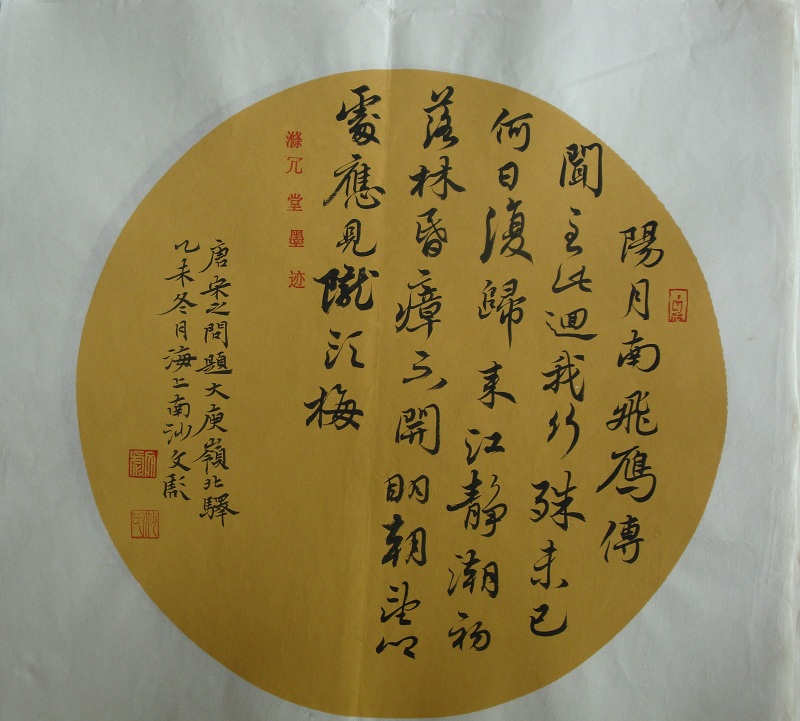 陽月南飛鴈傳
聞至此迴我行殊未已
何日復歸來江靜潮初
落林昏瘴不開明朝望鄉
處應見隴頭梅
滌冗堂墨迹
唐宋之問題大庾嶺北驛
乙未冬月海上南沙文彪